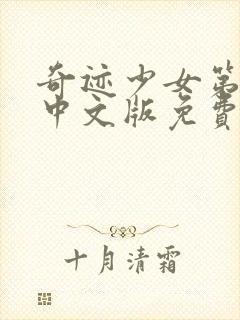 奇迹少女第
中文版免费
十月清霜